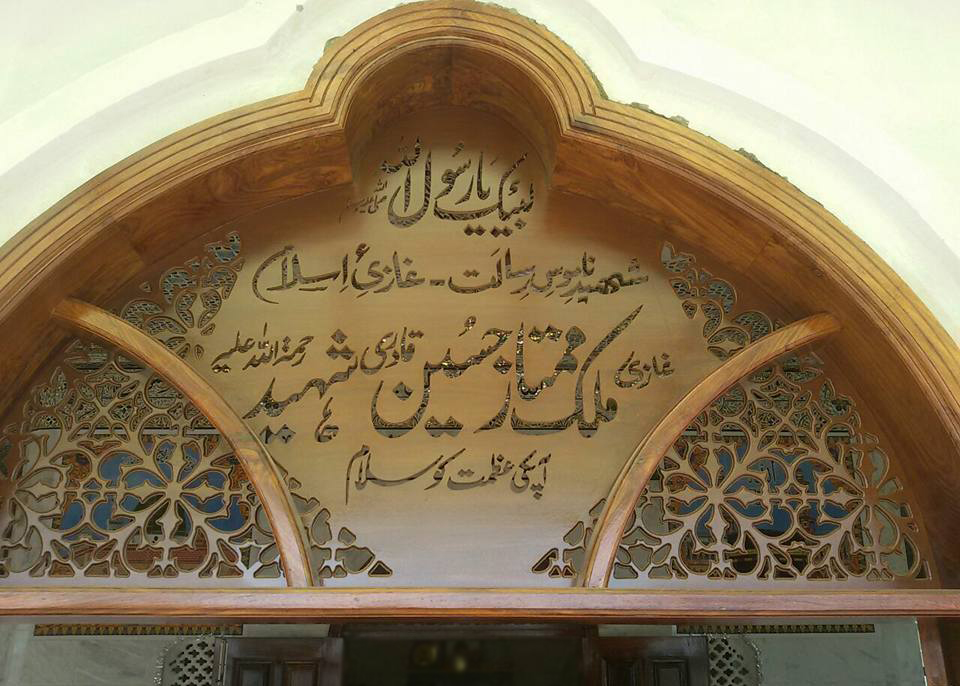 لبیک یا رسول اللہ صلی اللہ علیہ وسلم
شہید ناموسِ رسالت - غازیٔ اسلام
غازی ملک ممتاز حسین قادری شہید رحمۃ اللہ علیہ
آپکی عظمت کو سلام